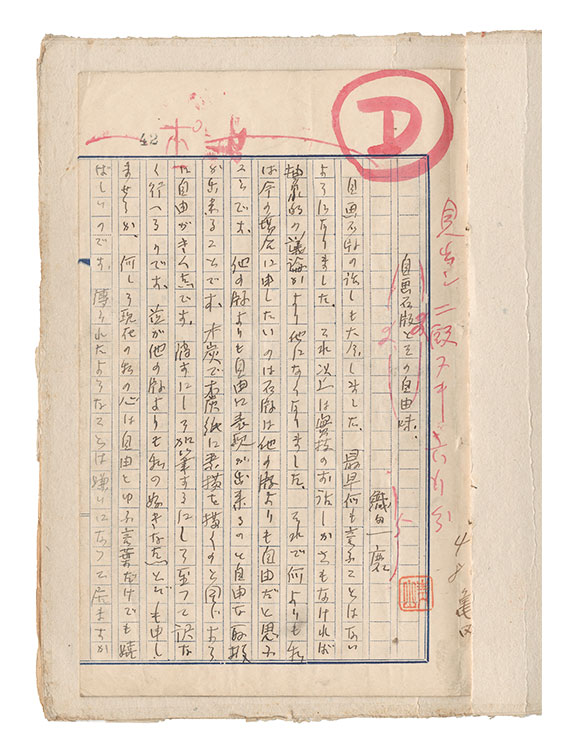 見出し二段ヌキ六行分
48 亀田
自画石版とその自由味。
織田一磨
自画石版の話しも大分しました。最早何も言ふことはない
ようになりました。それ以上は実技のお話しかさもなければ
抽象的の議論かより他になくなりました。それで何よりも私
は今の場合に申したいのは石版は他の版よりも自由だと思ふ
ことです。他の版よりも自由に表現が出来るのと自由な取扱
が出来ることです。木炭で木炭紙に素描を描くのと同じ
た自由がきく点です。消すにしろ加筆するにしろ至つて訳な
く行へるのです。茲が他の版よりも私の好きな点とでも申し
ませうか、何しろ現代の私の心は自由とゆふ言葉だけでも嬉
ばしいのです。縛られたようなことは嫌いになつて居ますか